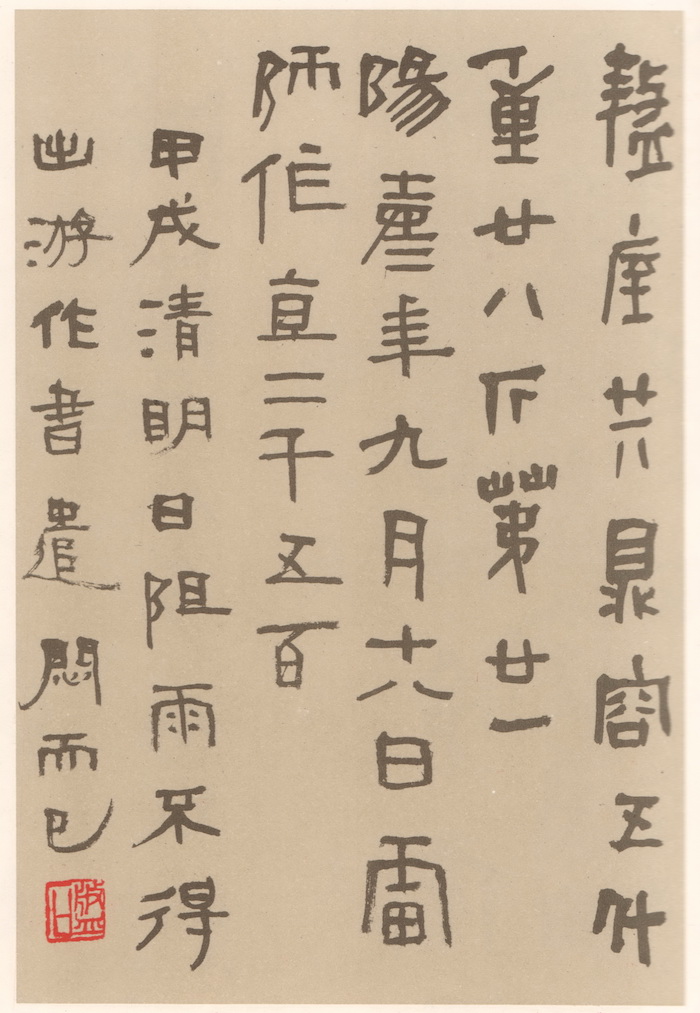 盩厔共鼎容五
重廿八斤第廿一
陽嘉三年九月十八日雷
師作直二千五百
甲戌清明日阻雨不得
出游作書遣悶而已